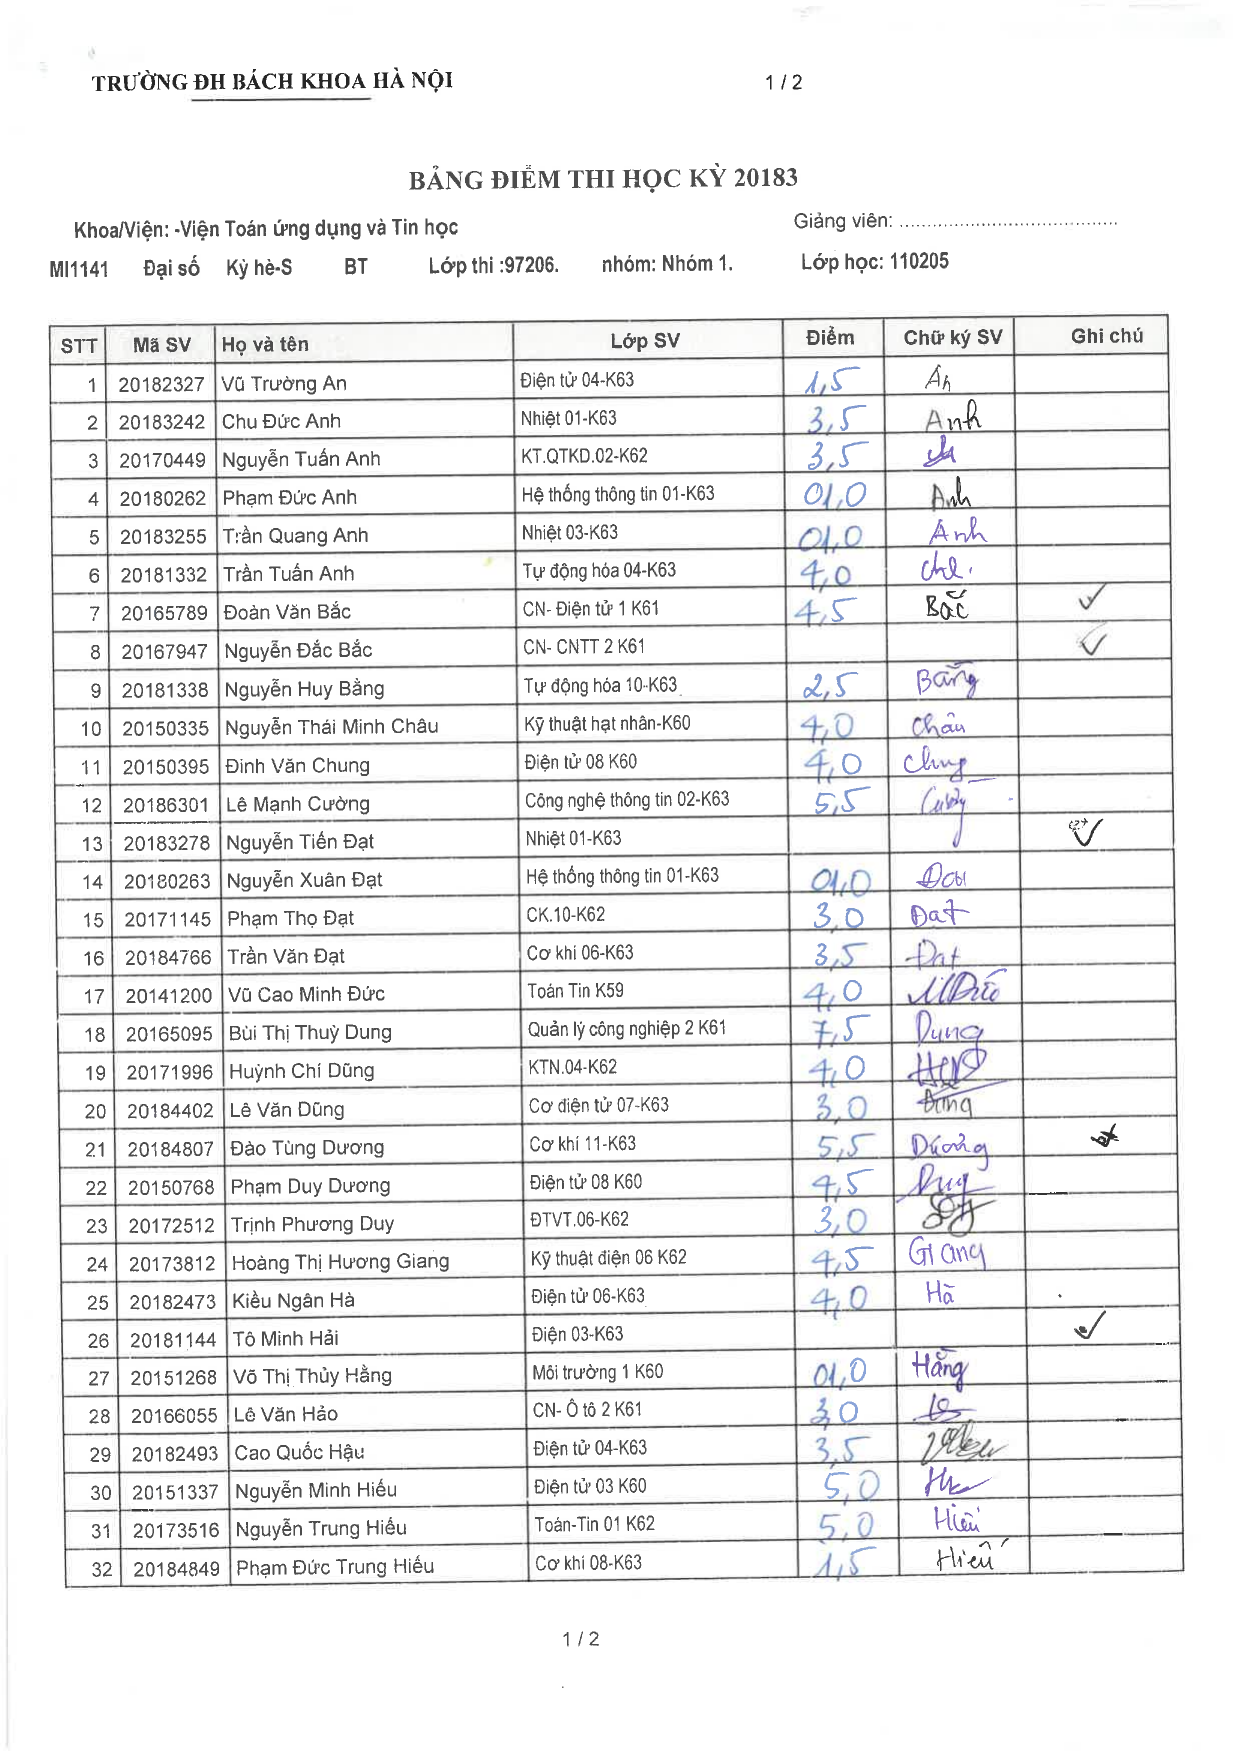 TRƯỜNG ĐH BÁCH KHOA HÀ NỘI 1 / 2
BẢNG ĐIỂM THI HỌC KỲ 20183
Khoa/Viện: -Viện Toán ứng dụng và Tin học Giảng viên: ........................................
MI1141 Đại số Kỳ hè-S BT Lớp thi :97206. nhóm: Nhóm 1. Lớp học: 110205
STT Mã SV Họ và tên Lớp SV Điểm Chữ ký SV Ghi chú
1 20182327 Vũ Trường An Điện tử 04-K63 1,5 An
2 20183242 Chu Đức Anh Nhiệt 01-K63 3,5 Anh
3 20170449 Nguyễn Tuấn Anh KT.QTKD.02-K62 3,5
4 20180262 Phạm Đức Anh Hệ thống thông tin 01-K63 01,0 Anh
5 20183255 Trần Quang Anh Nhiệt 03-K63 01,0 Anh
6 20181332 Trần Tuấn Anh Tự động hóa 04-K63 4,0
7 20165789 Đoàn Văn Bắc CN- Điện tử 1 K61 4,5 Bắc
8 20167947 Nguyễn Đắc Bắc CN- CNTT 2 K61
9 20181338 Nguyễn Huy Bằng Tự động hóa 10-K63 2,5 Bằng
10 20150335 Nguyễn Thái Minh Châu Kỹ thuật hạt nhân-K60 4,0 Châu
11 20150395 Đinh Văn Chung Điện tử 08 K60 4,0 Chung
12 20186301 Lê Mạnh Cường Công nghệ thông tin 02-K63 5,5 Cường
13 20183278 Nguyễn Tiến Đạt Nhiệt 01-K63
14 20180263 Nguyễn Xuân Đạt Hệ thống thông tin 01-K63 01,0
15 20171145 Phạm Thọ Đạt CK.10-K62 3,0 Đạt
16 20184766 Trần Văn Đạt Cơ khí 06-K63 3,5 Đạt
17 20141200 Vũ Cao Minh Đức Toán Tin K59 4,0 MĐức
18 20165095 Bùi Thị Thuỳ Dung Quản lý công nghiệp 2 K61 7,5 Dung
19 20171996 Huỳnh Chí Dũng KTN.04-K62 4,0
20 20184402 Lê Văn Dũng Cơ điện tử 07-K63 3,0 Dũng
21 20184807 Đào Tùng Dương Cơ khí 11-K63 5,5 Dương
22 20150768 Phạm Duy Dương Điện tử 08 K60 4,5 Duy
23 20172512 Trịnh Phương Duy ĐTVT.06-K62 3,0
24 20173812 Hoàng Thị Hương Giang Kỹ thuật điện 06 K62 4,5 Giang
25 20182473 Kiều Ngân Hà Điện tử 06-K63 4,0 Hà
26 20181144 Tô Minh Hải Điện 03-K63
27 20151268 Võ Thị Thủy Hằng Môi trường 1 K60 01,0 Hằng
28 20166055 Lê Văn Hảo CN- Ô tô 2 K61 3,0
29 20182493 Cao Quốc Hậu Điện tử 04-K63 3,5
30 20151337 Nguyễn Minh Hiếu Điện tử 03 K60 5,0
31 20173516 Nguyễn Trung Hiếu Toán-Tin 01 K62 5,0 Hiếu
32 20184849 Phạm Đức Trung Hiếu Cơ khí 08-K63 1,5 Hiếu
1 / 2